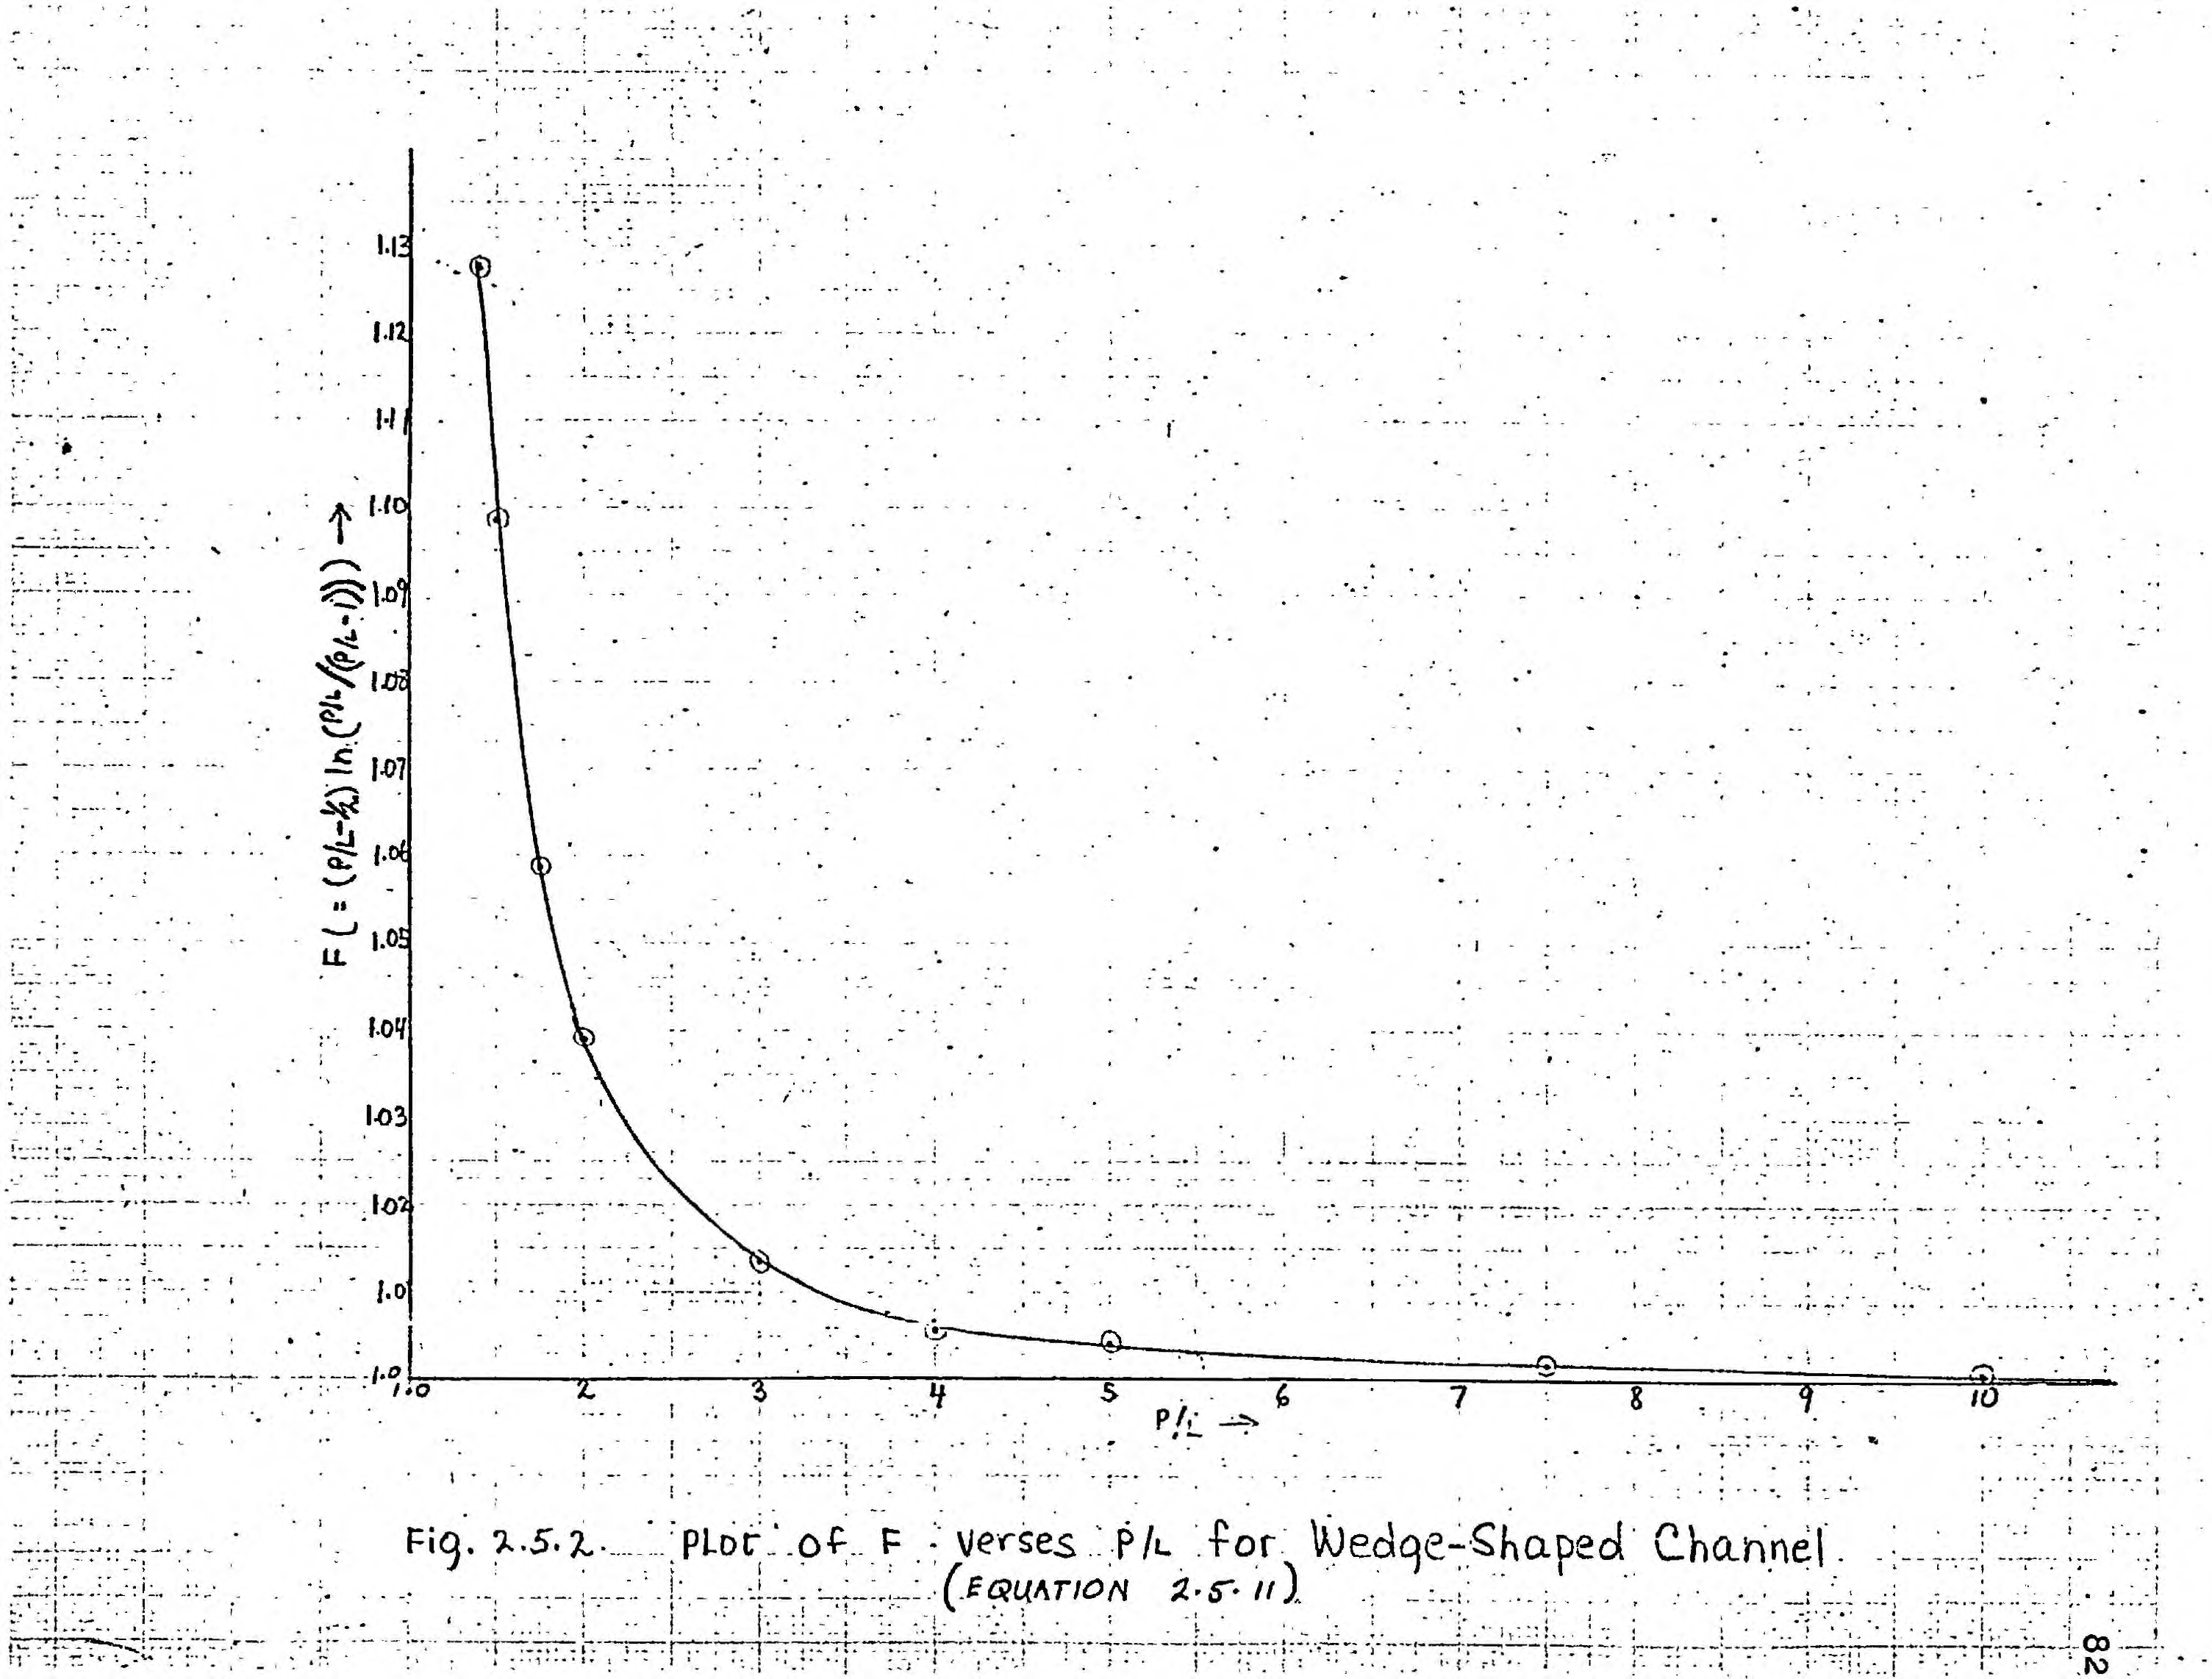 1.13
1.12
1.11
1.10
1.09
1.08
1.07
1.06
1.05
1.04
1.03
1.02
1.0
1.0
F (= (P/L-½) ln (P/L/(P/L-1))) →
1.0 2 3 4 5 6 7 8 9 10
P/L →
Fig. 2.5.2. PLOT of F verses P/L for Wedge-Shaped Channel.
(EQUATION 2.5.11)
82